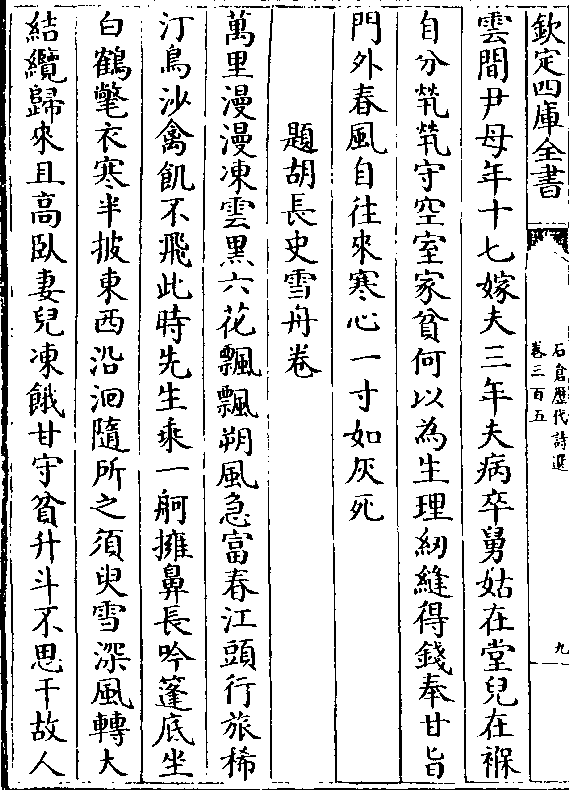 欽定四庫全書
石倉歷代詩選
卷三百五
九
雲間尹母年十七嫁夫三年夫病卒舅姑在堂兒在褓
自分煢煢守空室家貧何以為生理紉縫得錢奉甘旨
門外春風自往來寒心一寸如灰死
題胡長史雪舟卷
萬里漫漫凍雲黑六花飄飄朔風急富春江頭行旅稀
汀鳥沙禽飢不飛此時先生乘一舸擁鼻長吟篷底坐
白鶴氅衣寒半披東西沿洄隨所之須臾雪深風轉大
結纜歸來且高臥妻兒凍餓甘守貧升斗不思干故人